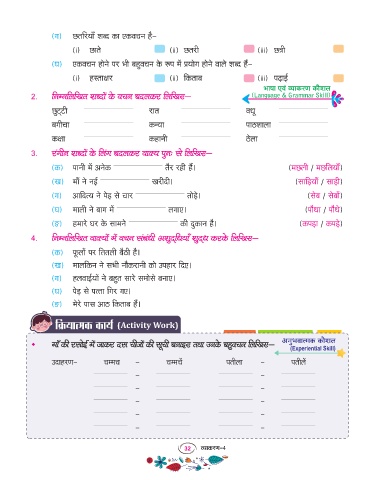 (ग) छतरियाँ शब्द का एकवचन है–
(i) छाते (ii) छतरी (iii) छत्री
(घ) एकवचन होने पर भी बहुवचन के रूप में प्रयोग होने वाले शब्द हैं–
(i) हस्ताक्षर (ii) किताब (iii) पढ़ाई
भाषा एवं व्याकरण कौशल
(Language & Grammar Skill)
2. निम्नलिखित शब्दों के वचन बदलकर लिखिए–
छुट्टी रात वधू
बगीचा कन्या पाठशाला
कक्षा कहानी ठेला
3. रंगीन शब्दों के लिंग बदलकर वाक्य पुनः से लिखिए–
(क) पानी में अनेक तैर रही हैं। (मछली / मछलियाँ)
(ख) माँ ने नई खरीदी। (साड़ियाँ / साड़ी)
(ग) आदित्य ने पेड़ से चार तोड़े। (सेब / सेबों)
(घ) माली ने बाग में लगाए। (पौधा / पौधे)
(ङ) हमारे घर के सामने की दुकान है। (कपड़ा / कपड़े)
4. निम्नलिखित वाक्यों में वचन संबंधी अशुद्धियाँ शुद्ध करके लिखिए–
(क) फूलों पर तितली बैठी है।
(ख) मालकिन ने सभी नौकरानी को उपहार दिए।
(ग) हलवाईयों ने बहुत सारे समोसे बनाए।
(घ) पेड़ से पत्ता गिर गए।
(ङ) मेरे पास आठ किताब हैं।
क्रियात्मक कार्य (Activity Work)
अनुभवात्मक कौशल
(Experiential Skill)
• माँ की रसोई में जाकर दस चीजों की सूची बनाइए तथा उनके बहुवचन लिखिए–
उदाहरण– चम्मच – चम्मचें पतीला – पतीलें
– –
– –
– –
– –
– –
32 व्याकरण-4